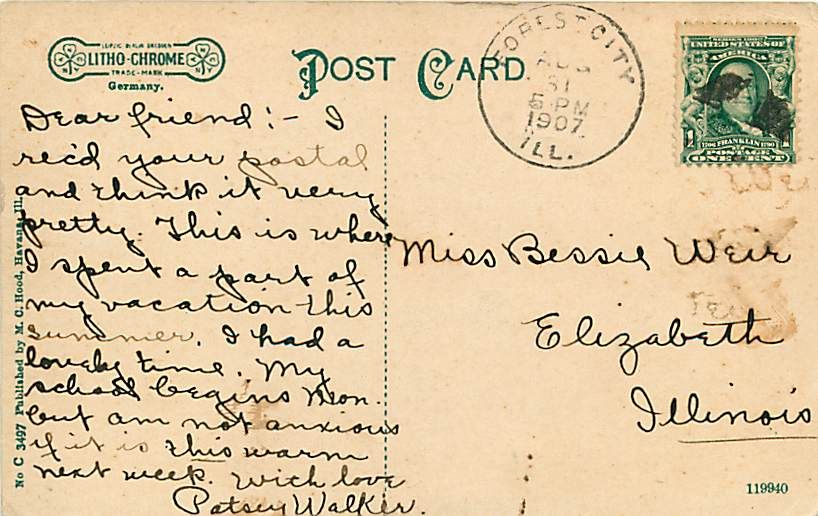 LEIPZIG BERLIN DRESDEN
LITHO-CHROME
TRADE-MARK
Germany.
POST CARD
FOREST CITY
AUG
31
5-PM
1907
ILL.
SERIES 1902
UNITED STATES OF
AMERICA
1706 FRANKLIN 1790
1 POSTAGE 1
ONE CENT
Dear friend:- I
rec'd your postal
and think it very
pretty. This is where
I spent a part of
my vacation this
summer. I had a
lovely time. My
school begins Mon.
but am not anxious
if it is this warm
next week. With love
Patsey Walker.
Miss Bessie Weir
Elizabeth
Illinois
No C 3497 Published by M. C. Hood, Havana, Ill.
119940